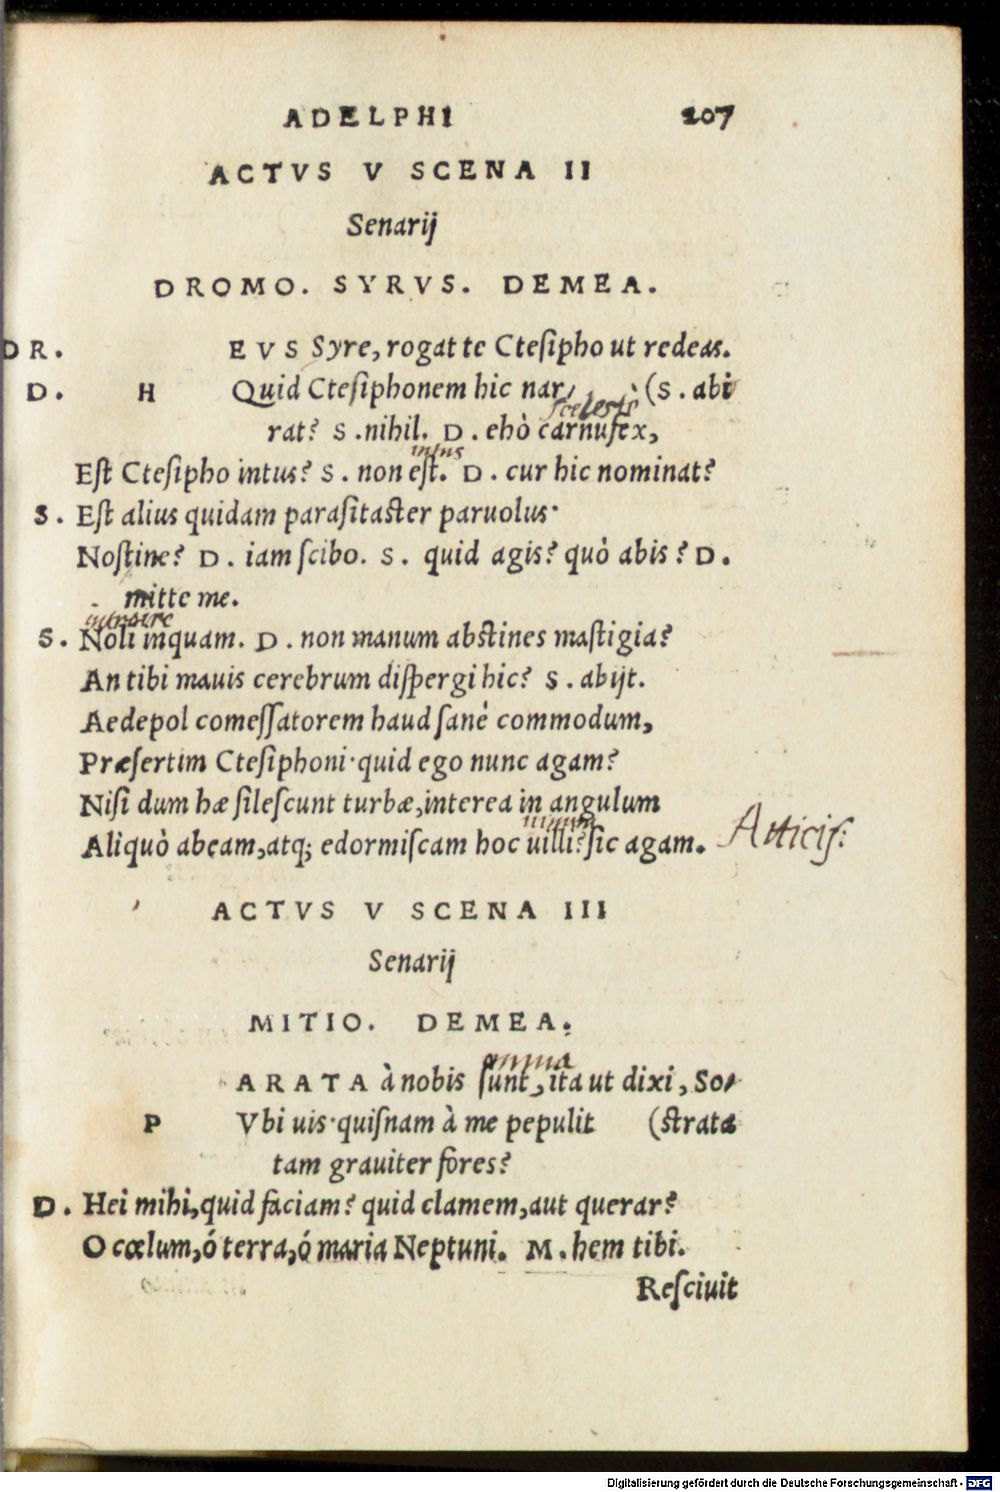 ADELPHI 207
ACTVS V SCENA II
Senarij
DROMO. SYRVS. DEMEA.
DR. EVS Syre, rogat te Cteſipho ut redeas.
D. H Quid Cteſiphonem hic nar, (S. abi
ſceleste
rat? S. nihil. D. ehò carnufex,
intus
Eſt Cteſipho intus? S. non eſt. D. cur hic nominat?
S. Eſt alius quidam paraſitaſter paruolus·
Noſtine? D. iam ſcibo. S. quid agis? quò abis? D.
mitte me.
intrare
S. Noli inquam. D. non manum abſtines maſtigia?
An tibi mauis cerebrum diſpergi hic? S. abijt.
Aedepol comeſſatorem haud ſanè commodum,
Præſertim Cteſiphoni·quid ego nunc agam?
Niſi dum hæ ſileſcunt turbæ, interea in angulum
Aliquò abeam, atq; edormiſcam hoc uilli? ſic agam. Atticiſ:
ACTVS V SCENA III
Senarij
MITIO. DEMEA.
omnia
ARATA à nobis ſunt, ita ut dixi, So-
P Vbi uis·quiſnam à me pepulit (ſtrata
tam grauiter fores?
D. Hei mihi, quid faciam? quid clamem, aut querar?
O cœlum, ó terra, ó maria Neptuni. M. hem tibi.
Reſciuit
Digitalisierung gefördert durch die Deutsche Forschungsgemeinschaft - DFG